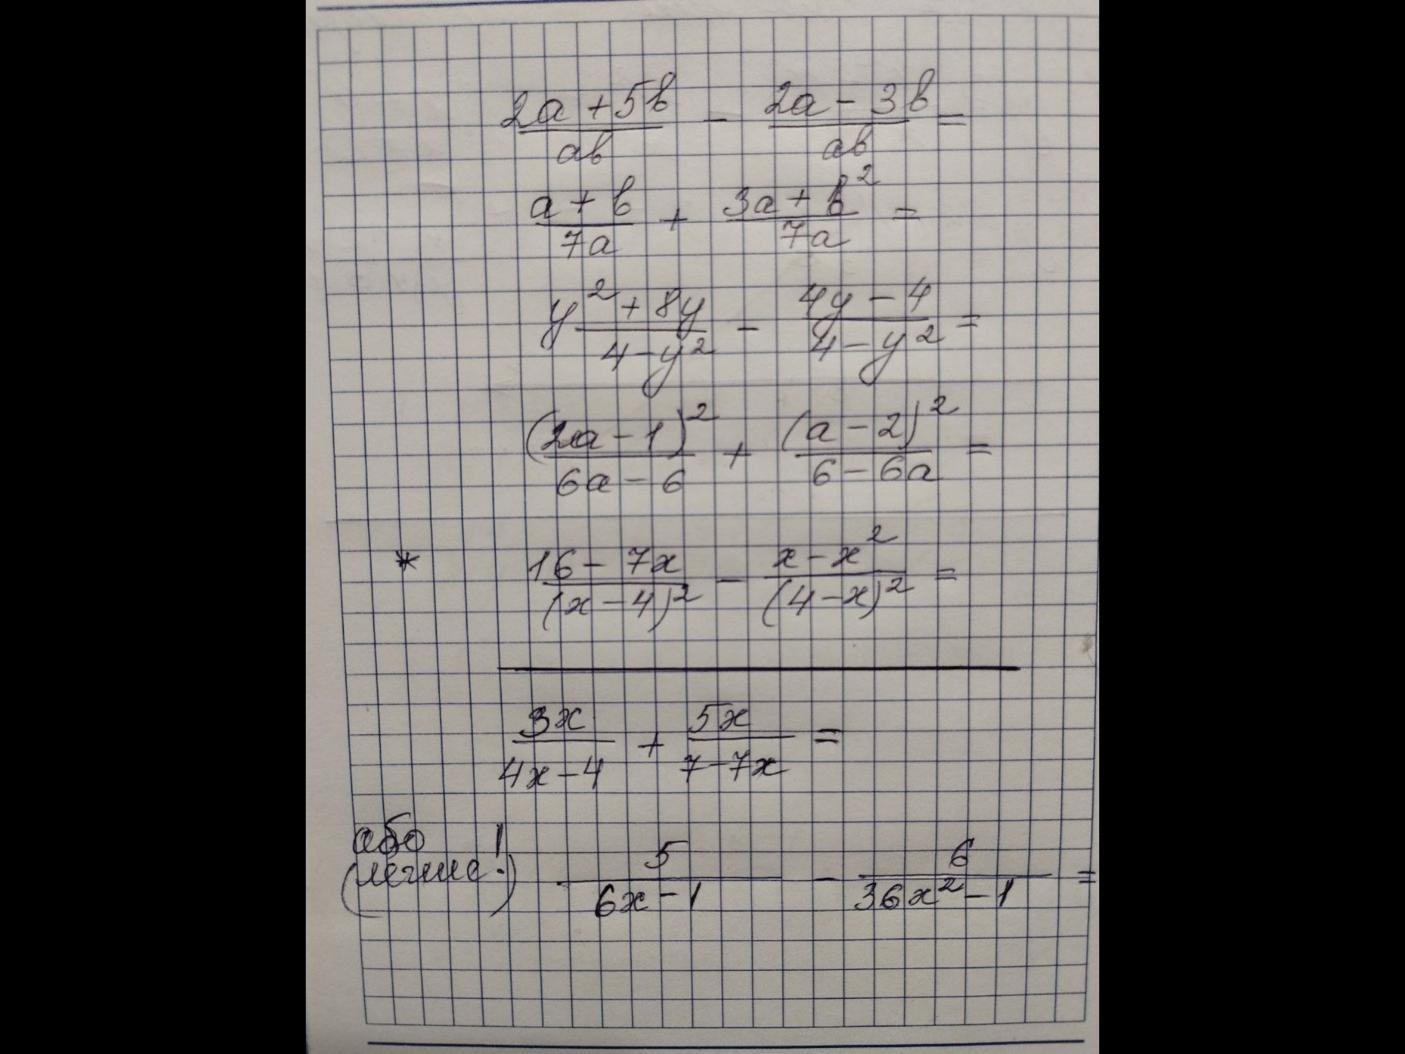 (2a + 5b)/(ab) - (2a - 3b)/(ab) =
(a + b)/(7a) + (3a + b²)/(7a) =
(y² + 8y)/(4 - y²) - (4y - 4)/(4 - y²) =
(2a - 1)²/(6a - 6) + (a - 2)²/(6 - 6a) =
* (16 - 7x)/(x - 4)² - (x - x²)/(4 - x)² =
3x/(4x - 4) + 5x/(7 - 7x) =
або
(легше!) 5/(6x - 1) - 6/(36x² - 1) =